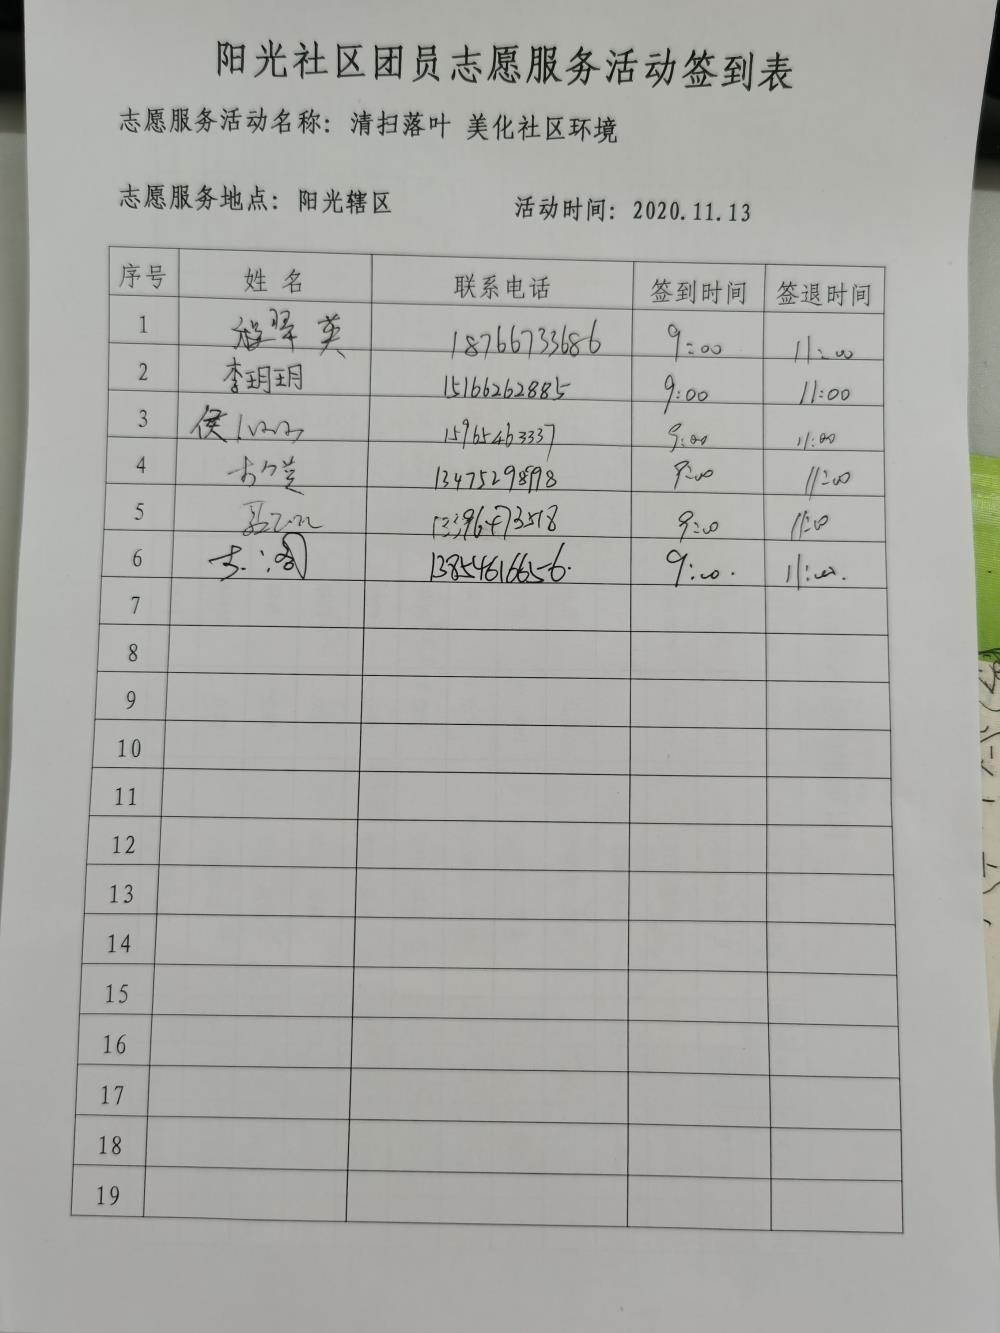 阳光社区团员志愿服务活动签到表
志愿服务活动名称：清扫落叶 美化社区环境
志愿服务地点：阳光辖区 活动时间：2020.11.13
序号 姓名 联系电话 签到时间 签退时间
1 英 18766733686 9:00 11:00
2 李玥玥 15166262885 9:00 11:00
3 侯 15965463337 9:00 11:00
4 13475298998 9:00 11:00
5 13396473518 9:00 11:00
6 13854616656 9:00 11:00
7
8
9
10
11
12
13
14
15
16
17
18
19